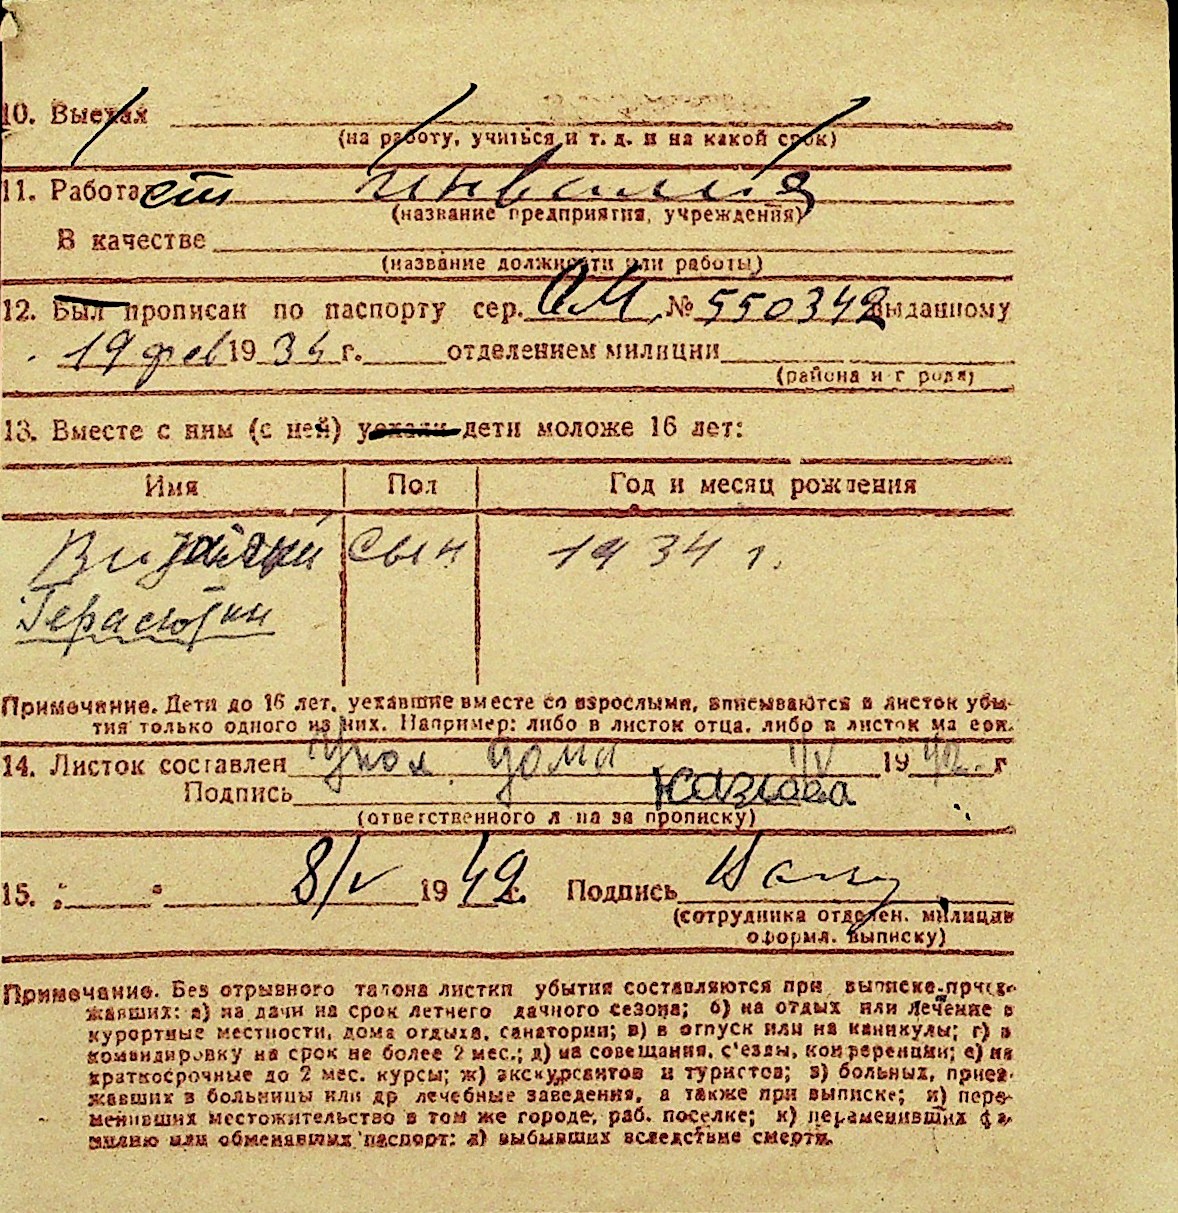 10. Выехал
(на работу, учиться и т. д. и на какой срок)
11. Работает инвалид
(название предприятия, учреждения)
В качестве
(название должности или работы)
12. Был прописан по паспорту сер. № 550342 выданному
19 фев 19 г. отделением милиции
(района и города)
13. Вместе с ним (с ней) уехали дети моложе 16 лет:
Имя Пол Год и месяц рождения
сын 1934 г.
Примечание. Дети до 16 лет, уехавшие вместе со взрослыми, вписываются в листок убы-
тия только одного из них. Например: либо в листок отца, либо в листок матери.
14. Листок составлен Упол. дома 1942 г
Подпись
(ответственного лица за прописку)
15. 8/V 1942 г. Подпись
(сотрудника отделен. милиции
оформл. выписку)
Примечание. Без отрывного талона листки убытия составляются при выписке приез-
жавших: а) на дачи на срок летнего дачного сезона; б) на отдых или лечение в
курортные местности, дома отдыха, санатории; в) в отпуск или на каникулы; г) в
командировку на срок не более 2 мес.; д) на совещания, с'езды, конференции; е) на
краткосрочные до 2 мес. курсы; ж) экскурсантов и туристов; з) больных, приез-
жавших в больницы или др лечебные заведения, а также при выписке; и) пере-
менивших местожительство в том же городе, раб. поселке; к) переменивших фа-
милию или обменявших паспорт; л) выбывших вследствие смерти.